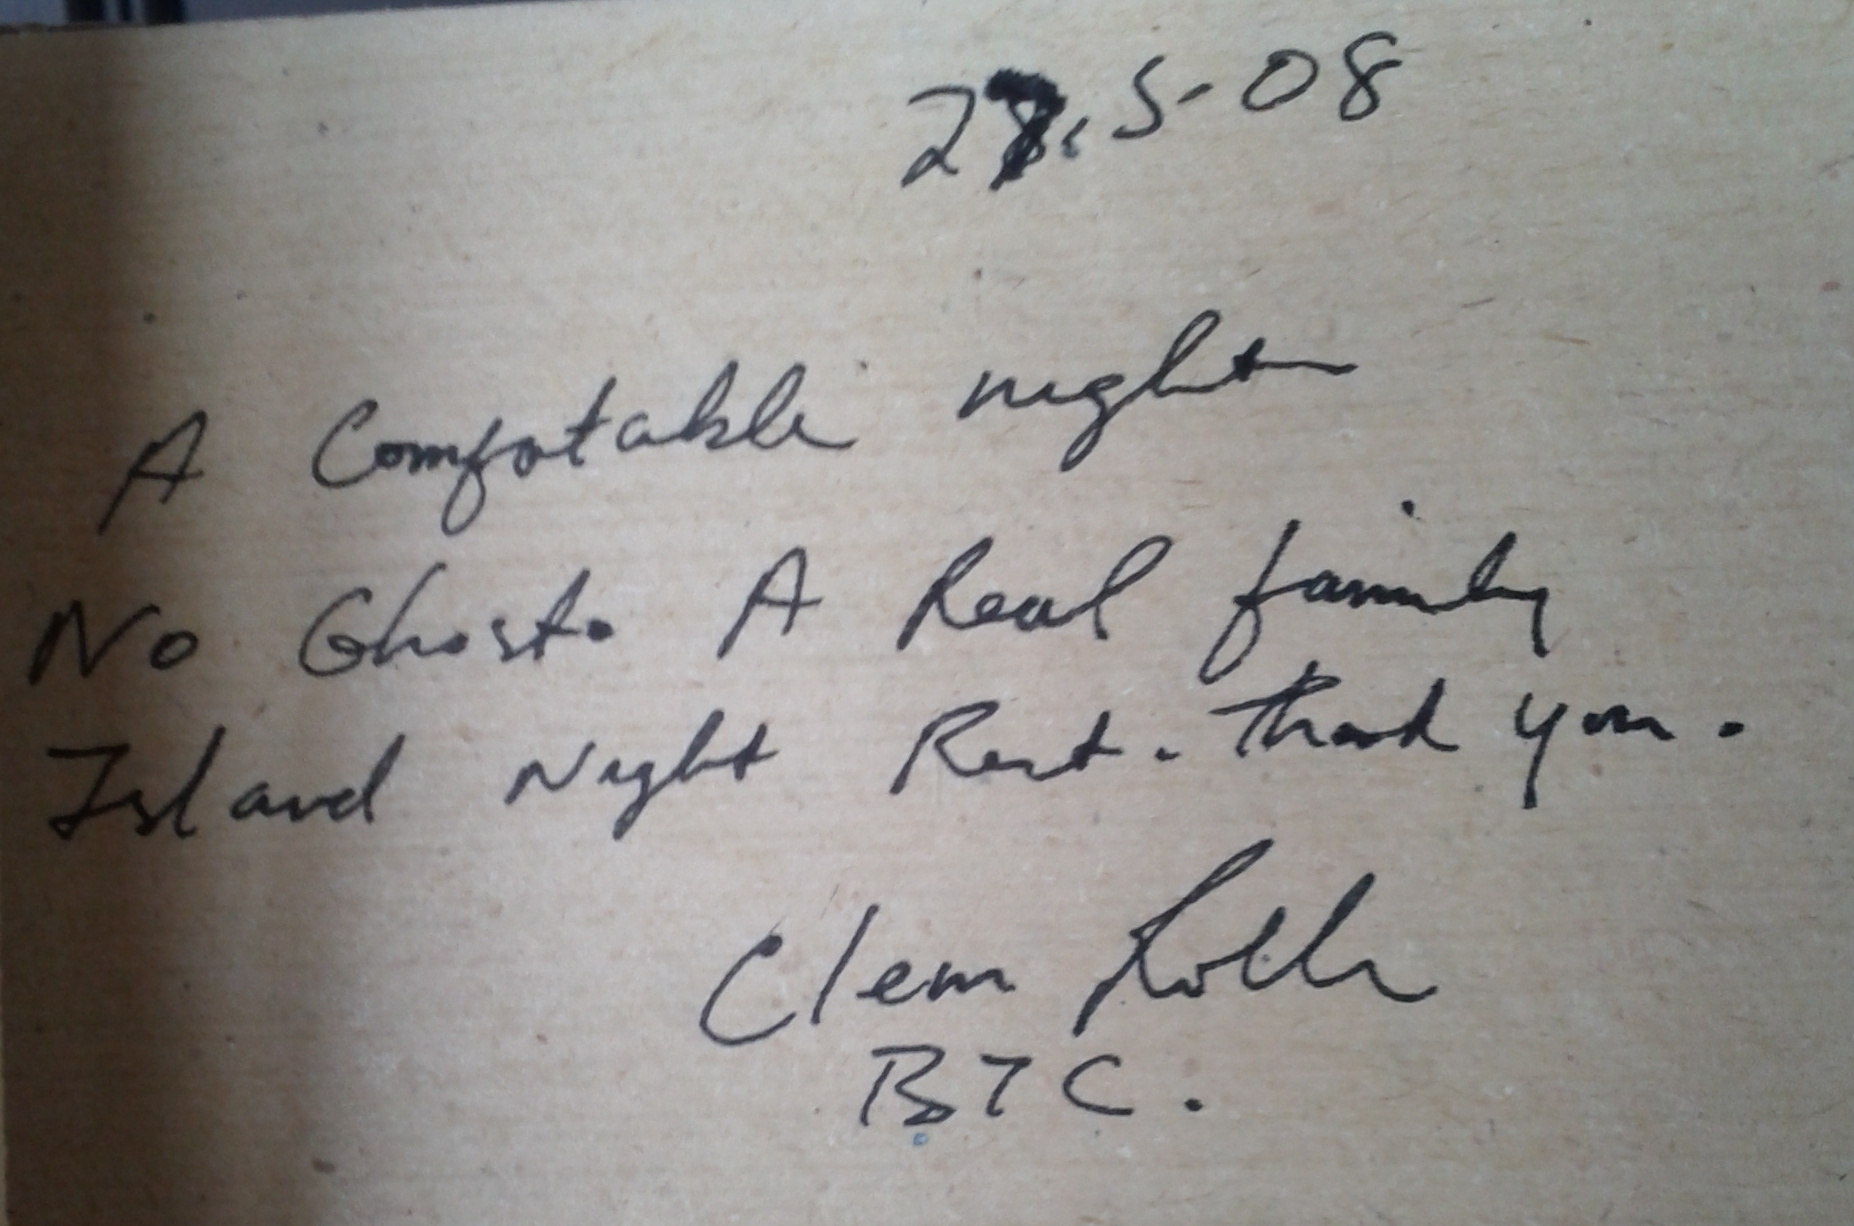 5-08
A Comfotable night
No Ghost. A Real family
Island Night Rest. Thank you.
Clem
BTC.